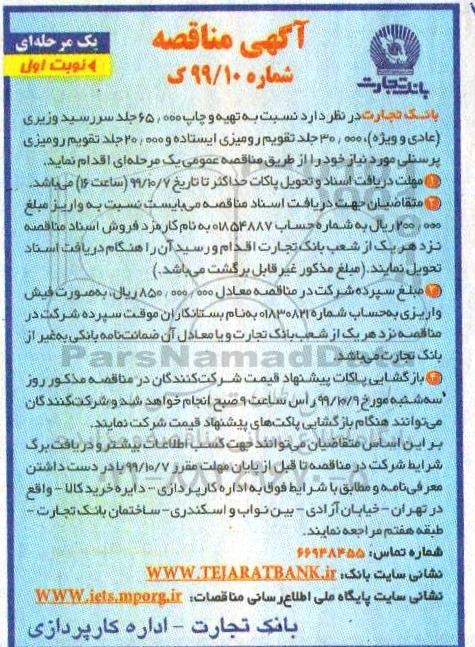 یک مرحله‌ای
نوبت اول
آگهی مناقصه
شماره ۹۹/۱۰ ک
بانک تجارت
بانک تجارت در نظر دارد نسبت به تهیه و چاپ ۶۵,۰۰۰ جلد سررسید وزیری
(عادی و ویژه)، ۳۰,۰۰۰ جلد تقویم رومیزی ایستاده و ۲۰,۰۰۰ جلد تقویم رومیزی
پرسنلی مورد نیاز خود را از طریق مناقصه عمومی یک مرحله‌ای اقدام نماید.
۱ مهلت دریافت اسناد و تحویل پاکات حداکثر تا تاریخ ۹۹/۱۰/۷ (ساعت ۱۶) می‌باشد.
۲ متقاضیان جهت دریافت اسناد مناقصه می‌بایست نسبت به واریز مبلغ
۲۰۰,۰۰۰ ریال به شماره حساب ۰۱۸۵۴۸۸۷ به نام کارمزد فروش اسناد مناقصه
نزد هر یک از شعب بانک تجارت اقدام و رسید آن را هنگام دریافت اسناد
تحویل نمایند. (مبلغ مذکور غیر قابل برگشت می‌باشد.)
۳ مبلغ سپرده شرکت در مناقصه معادل ۸۵۰,۰۰۰,۰۰۰ ریال، به‌صورت فیش
واریزی به‌حساب شماره ۰۱۸۳۰۸۲۱ به‌نام بستانکاران موقت سپرده شرکت در
مناقصه نزد هر یک از شعب بانک تجارت و یا معادل آن ضمانت‌نامه بانکی به‌غیر از
بانک تجارت می‌باشد.
۴ بازگشایی پاکات پیشنهاد قیمت شرکت‌کنندگان در مناقصه مذکور روز
سه‌شنبه مورخ ۹۹/۱۰/۹ رأس ساعت ۹ صبح انجام خواهد شد و شرکت‌کنندگان
می‌توانند هنگام بازگشایی پاکت‌های پیشنهاد قیمت شرکت نمایند.
بر این اساس متقاضیان می‌توانند جهت کسب اطلاعات بیشتر و دریافت برگ
شرایط شرکت در مناقصه تا قبل از پایان مهلت مقرر ۹۹/۱۰/۷ با در دست داشتن
معرفی‌نامه و مطابق با شرایط فوق به اداره کارپردازی - دایره خرید کالا - واقع
در تهران - خیابان آزادی - بین نواب و اسکندری - ساختمان بانک تجارت -
طبقه هفتم مراجعه نمایند.
شماره تماس: ۶۶۹۴۸۴۵۵
نشانی سایت بانک: WWW.TEJARATBANK.ir
نشانی سایت پایگاه ملی اطلاع‌رسانی مناقصات: WWW.iets.mporg.ir
بانک تجارت - اداره کارپردازی
ParsNamadData